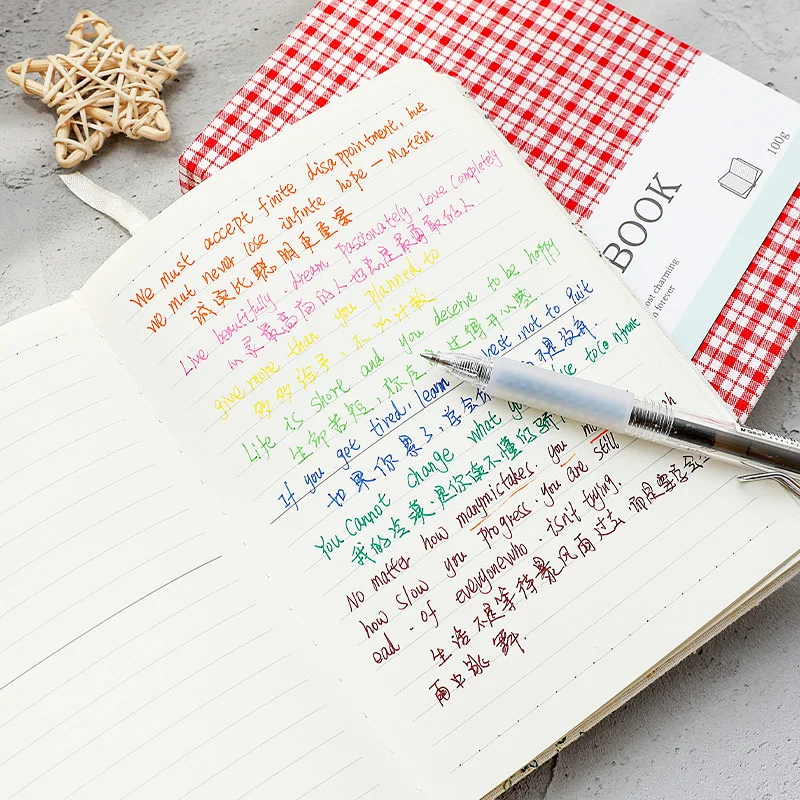 We must accept finite disappointment, but
we mut never lose infinte hope — Matein
诚实比聪明更重要
Live beautifully, dream passionately, love completely
心灵最高尚的人也总是最勇敢的人
give more than you planned to
多多给予，不必计较
Life is shore and you deserve to be happy
生命苦短，你应 过得开心些
If you get tired, learn rest, not to quit
如果你累了，学会 不是放弃.
You Cannot change what you to confront
我的冷漠，是你读不懂的
No matter how many mistakes you
how slow you progress you are still
ead of everyone who isn't tying.
生活不是等待暴风雨过去，而是要学会
雨中跳舞.
BOOK
ost charming
n forever
100g